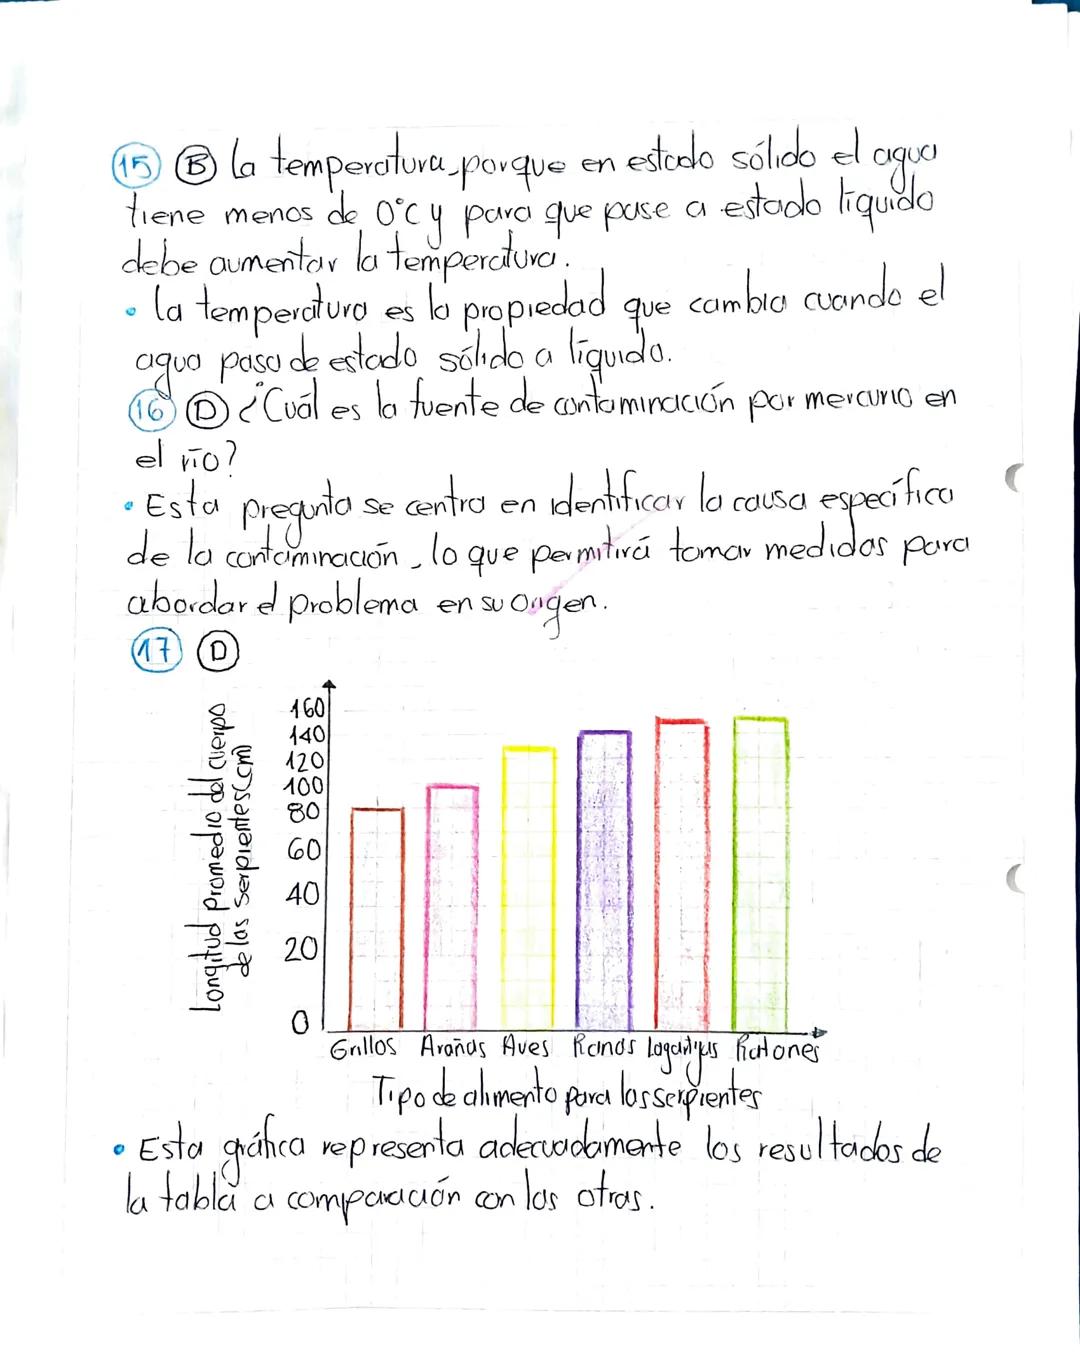 15 B La temperatura, porque en estado sólido el agua
tiene menos de 0°C y para que pase a estado líquido
debe aumentar la temperatura.
• La temperatura es la propiedad que cambia cuando el
agua pasa de estado sólido a líquido.
16 D ¿Cuál es la fuente de contaminación por mercurio en
el río?
• Esta pregunta se centra en identificar la causa específica
de la contaminación, lo que permitirá tomar medidas para
abordar el problema en su origen.
17 D
Longitud Promedio del cuerpo
de las serpientes (cm)
160
140
120
100
80
60
40
20
0
Grillos Arañas Aves Ranas Lagartijas Ratones
Tipo de alimento para las serpientes
• Esta gráfica representa adecuadamente los resultados de
la tabla a comparación con las otras.